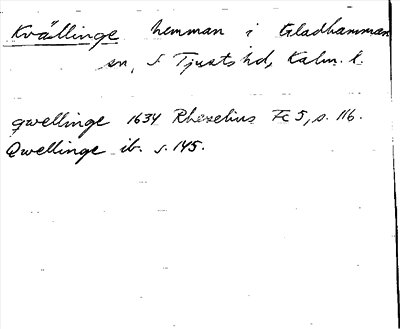 Kvällinge hemman i Gladhammar
sn, S Tjusts hd, Kalm. l.
qwellinge 1634 Rhezelius Fc 5, s. 116.
Qwellinge ib. s. 145.